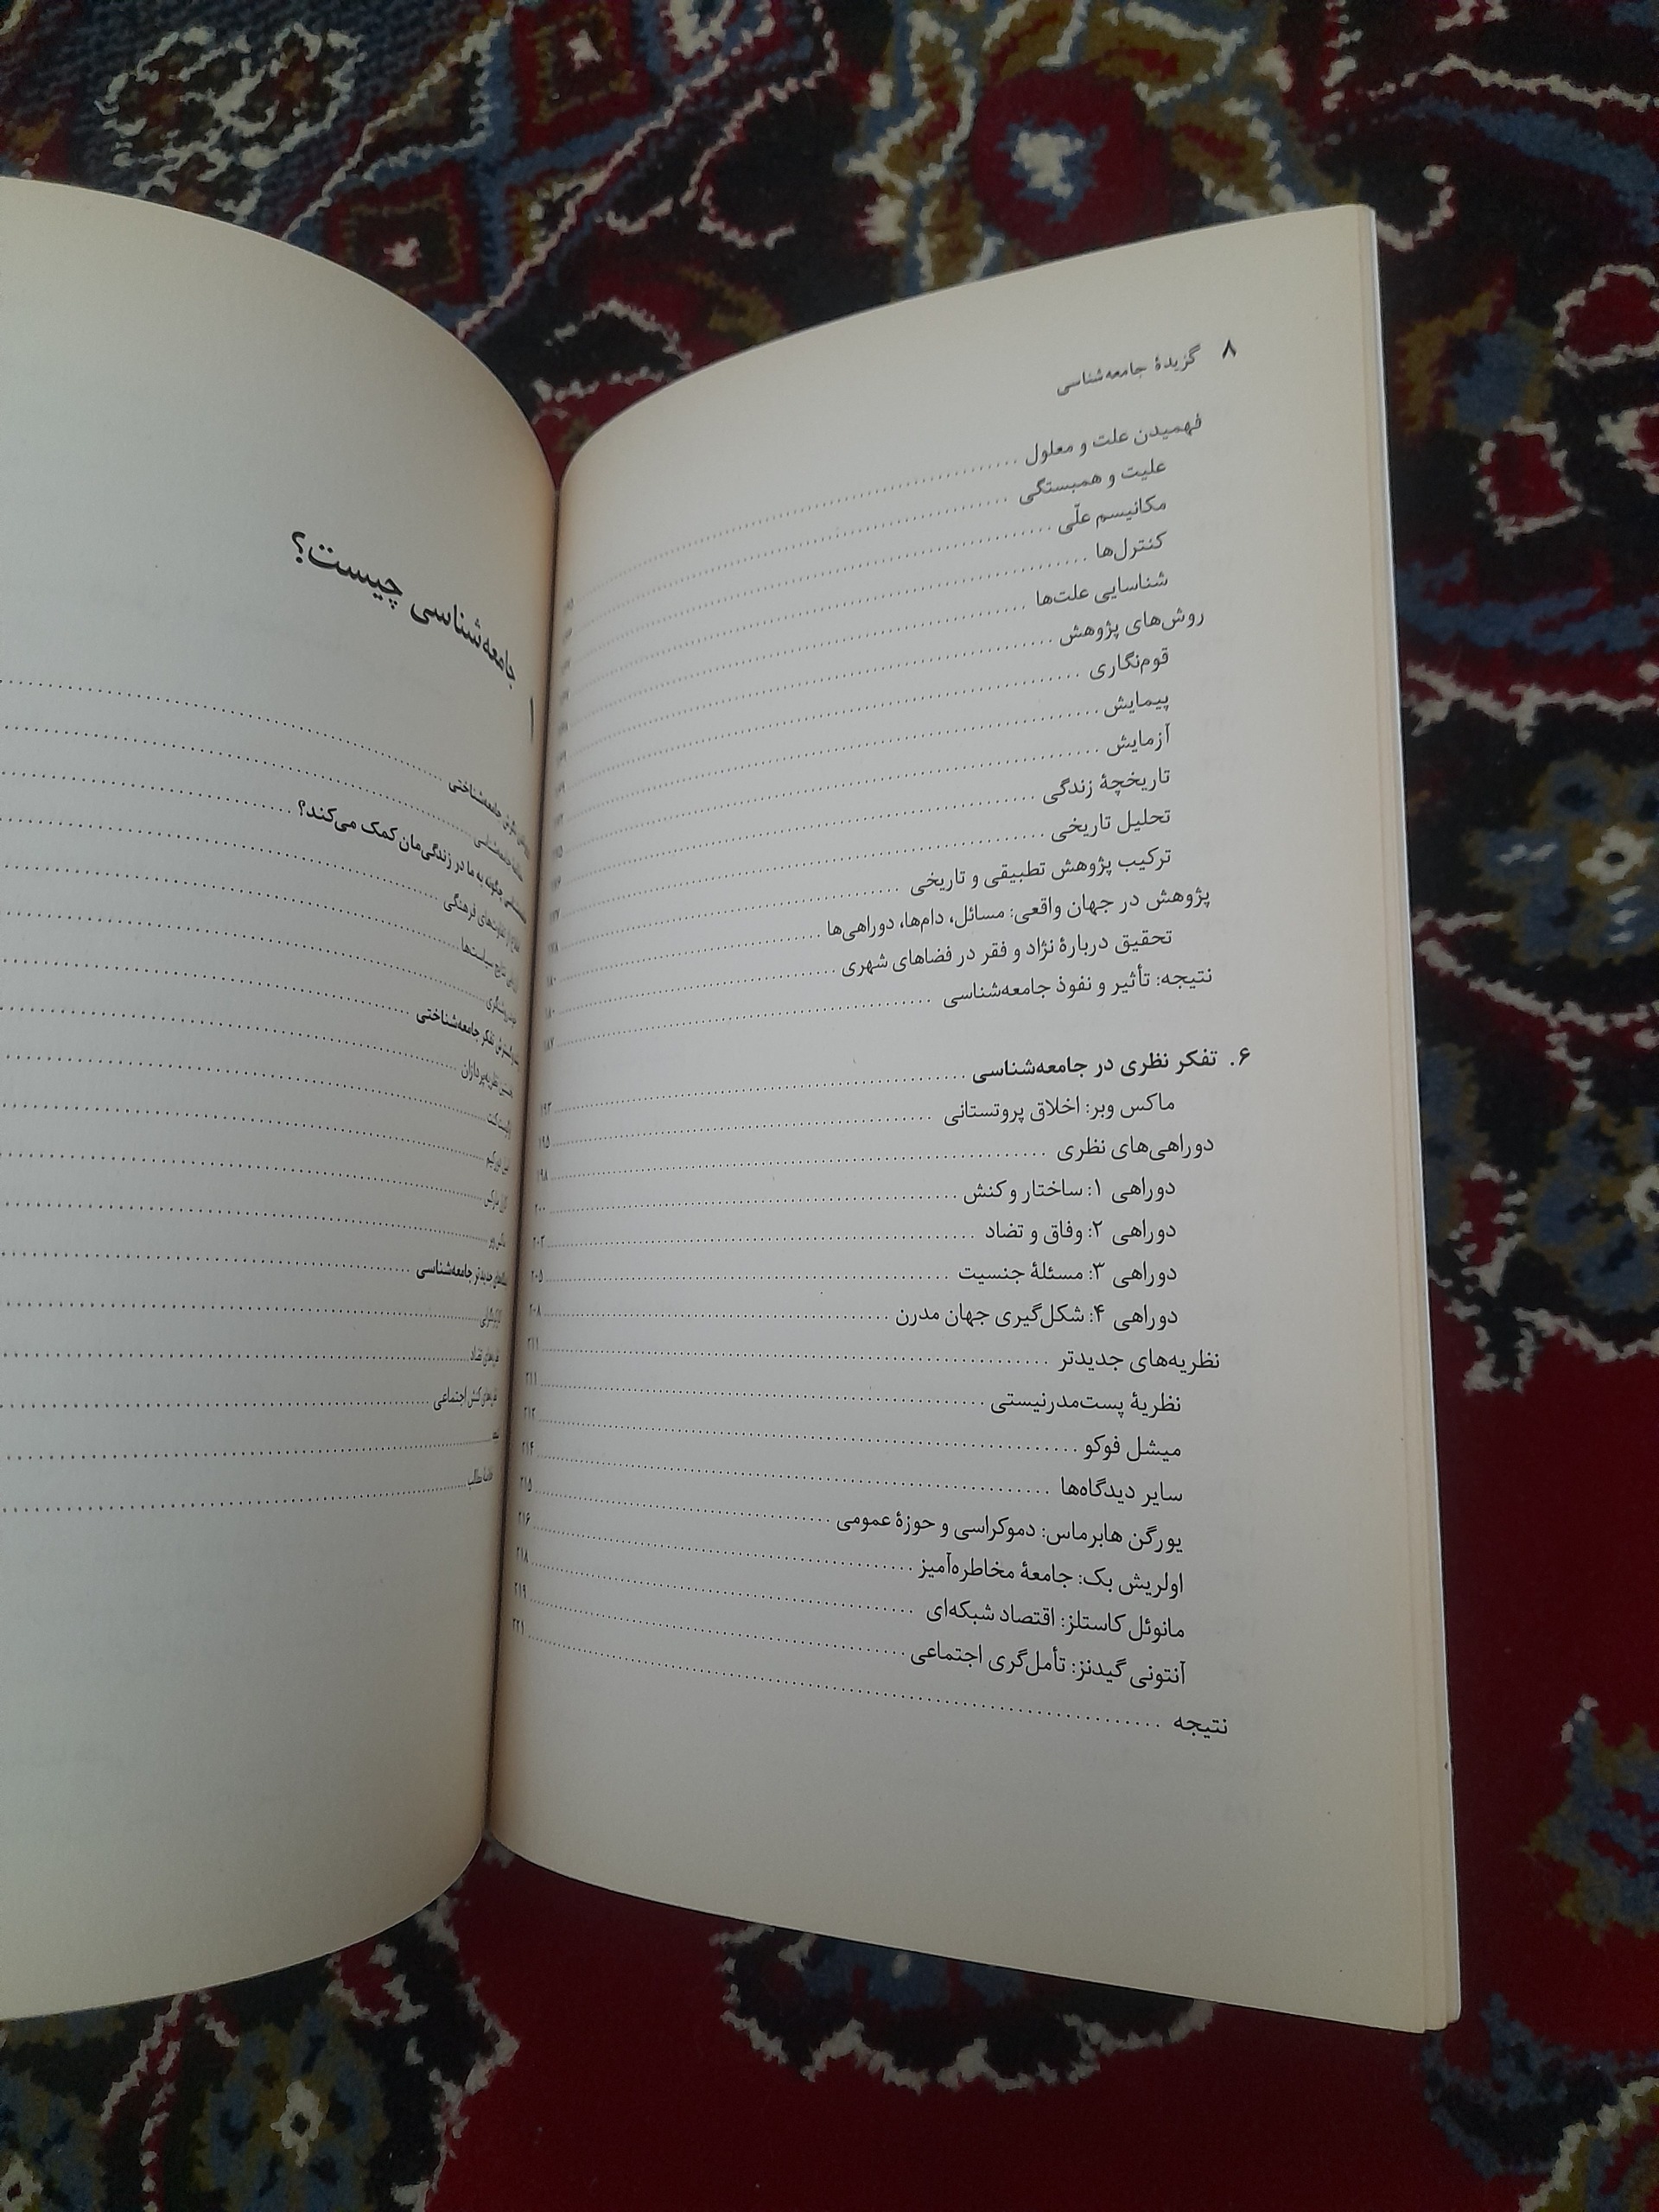 ۸ گزیدۀ جامعه‌شناسی
فهمیدن علت و معلول
علیت و همبستگی
مکانیسم علّی
کنترل‌ها
شناسایی علت‌ها
روش‌های پژوهش
قوم‌نگاری
پیمایش
آزمایش
تاریخچۀ زندگی
تحلیل تاریخی
ترکیب پژوهش تطبیقی و تاریخی
پژوهش در جهان واقعی: مسائل، دام‌ها، دوراهی‌ها ۱۸۰
تحقیق دربارۀ نژاد و فقر در فضاهای شهری ۱۸۰
نتیجه: تأثیر و نفوذ جامعه‌شناسی ۱۸۷
۶. تفکر نظری در جامعه‌شناسی ۱۹۳
ماکس وبر: اخلاق پروتستانی ۱۹۵
دوراهی‌های نظری ۱۹۸
دوراهی ۱: ساختار و کنش ۲۰۰
دوراهی ۲: وفاق و تضاد ۲۰۳
دوراهی ۳: مسئلۀ جنسیت ۲۰۵
دوراهی ۴: شکل‌گیری جهان مدرن ۲۰۸
نظریه‌های جدیدتر ۲۱۱
نظریۀ پست‌مدرنیستی ۲۱۱
میشل فوکو ۲۱۲
سایر دیدگاه‌ها ۲۱۴
یورگن هابرماس: دموکراسی و حوزۀ عمومی ۲۱۵
اولریش بک: جامعۀ مخاطره‌آمیز ۲۱۶
مانوئل کاستلز: اقتصاد شبکه‌ای ۲۱۸
آنتونی گیدنز: تأمل‌گری اجتماعی ۲۱۹
نتیجه ۲۲۱
۱ جامعه‌شناسی چیست؟
جامعه‌شناختی
جامعه‌شناسی
چگونه به ما در زندگی‌مان کمک می‌کند؟
تفاوت‌های فرهنگی
نتایج سیاست‌ها
خودروشنگری
تفکر جامعه‌شناختی
نظریه‌پردازان
اگوست کنت
امیل دورکیم
کارل مارکس
ماکس وبر
جدیدتر جامعه‌شناسی
کارکردگرایی
تضاد
کنش اجتماعی
نتیجه
خلاصۀ مطالب